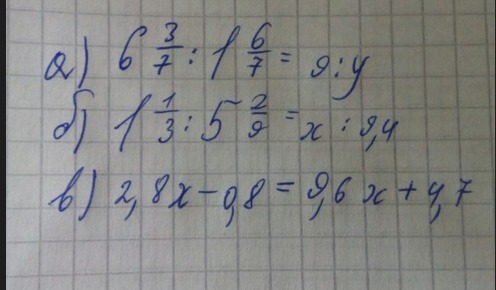 а) 6 3/7 : 1 6/7 = 9 : y
б) 1 1/3 : 5 2/9 = x : 9,4
в) 2,8x - 0,8 = 9,6x + 4,7